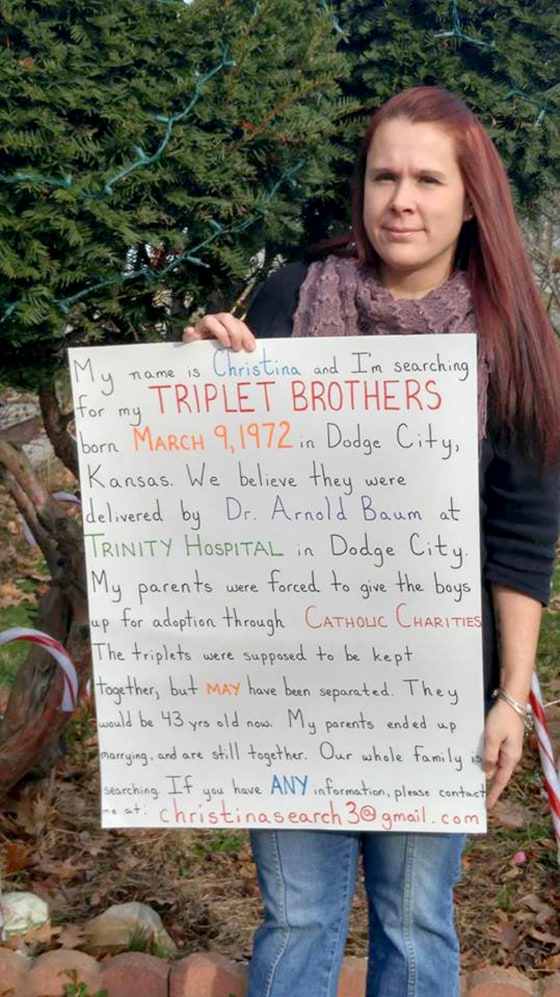 My name is Christina and I'm searching
for my TRIPLET BROTHERS
born MARCH 9, 1972 in Dodge City,
Kansas. We believe they were
delivered by Dr. Arnold Baum at
TRINITY HOSPITAL in Dodge City.
My parents were forced to give the boys
up for adoption through CATHOLIC CHARITIES
The triplets were supposed to be kept
together, but MAY have been separated. They
would be 43 yrs old now. My parents ended up
marrying, and are still together. Our whole family is
searching. If you have ANY information, please contact
me at: christinasearch3@gmail.com